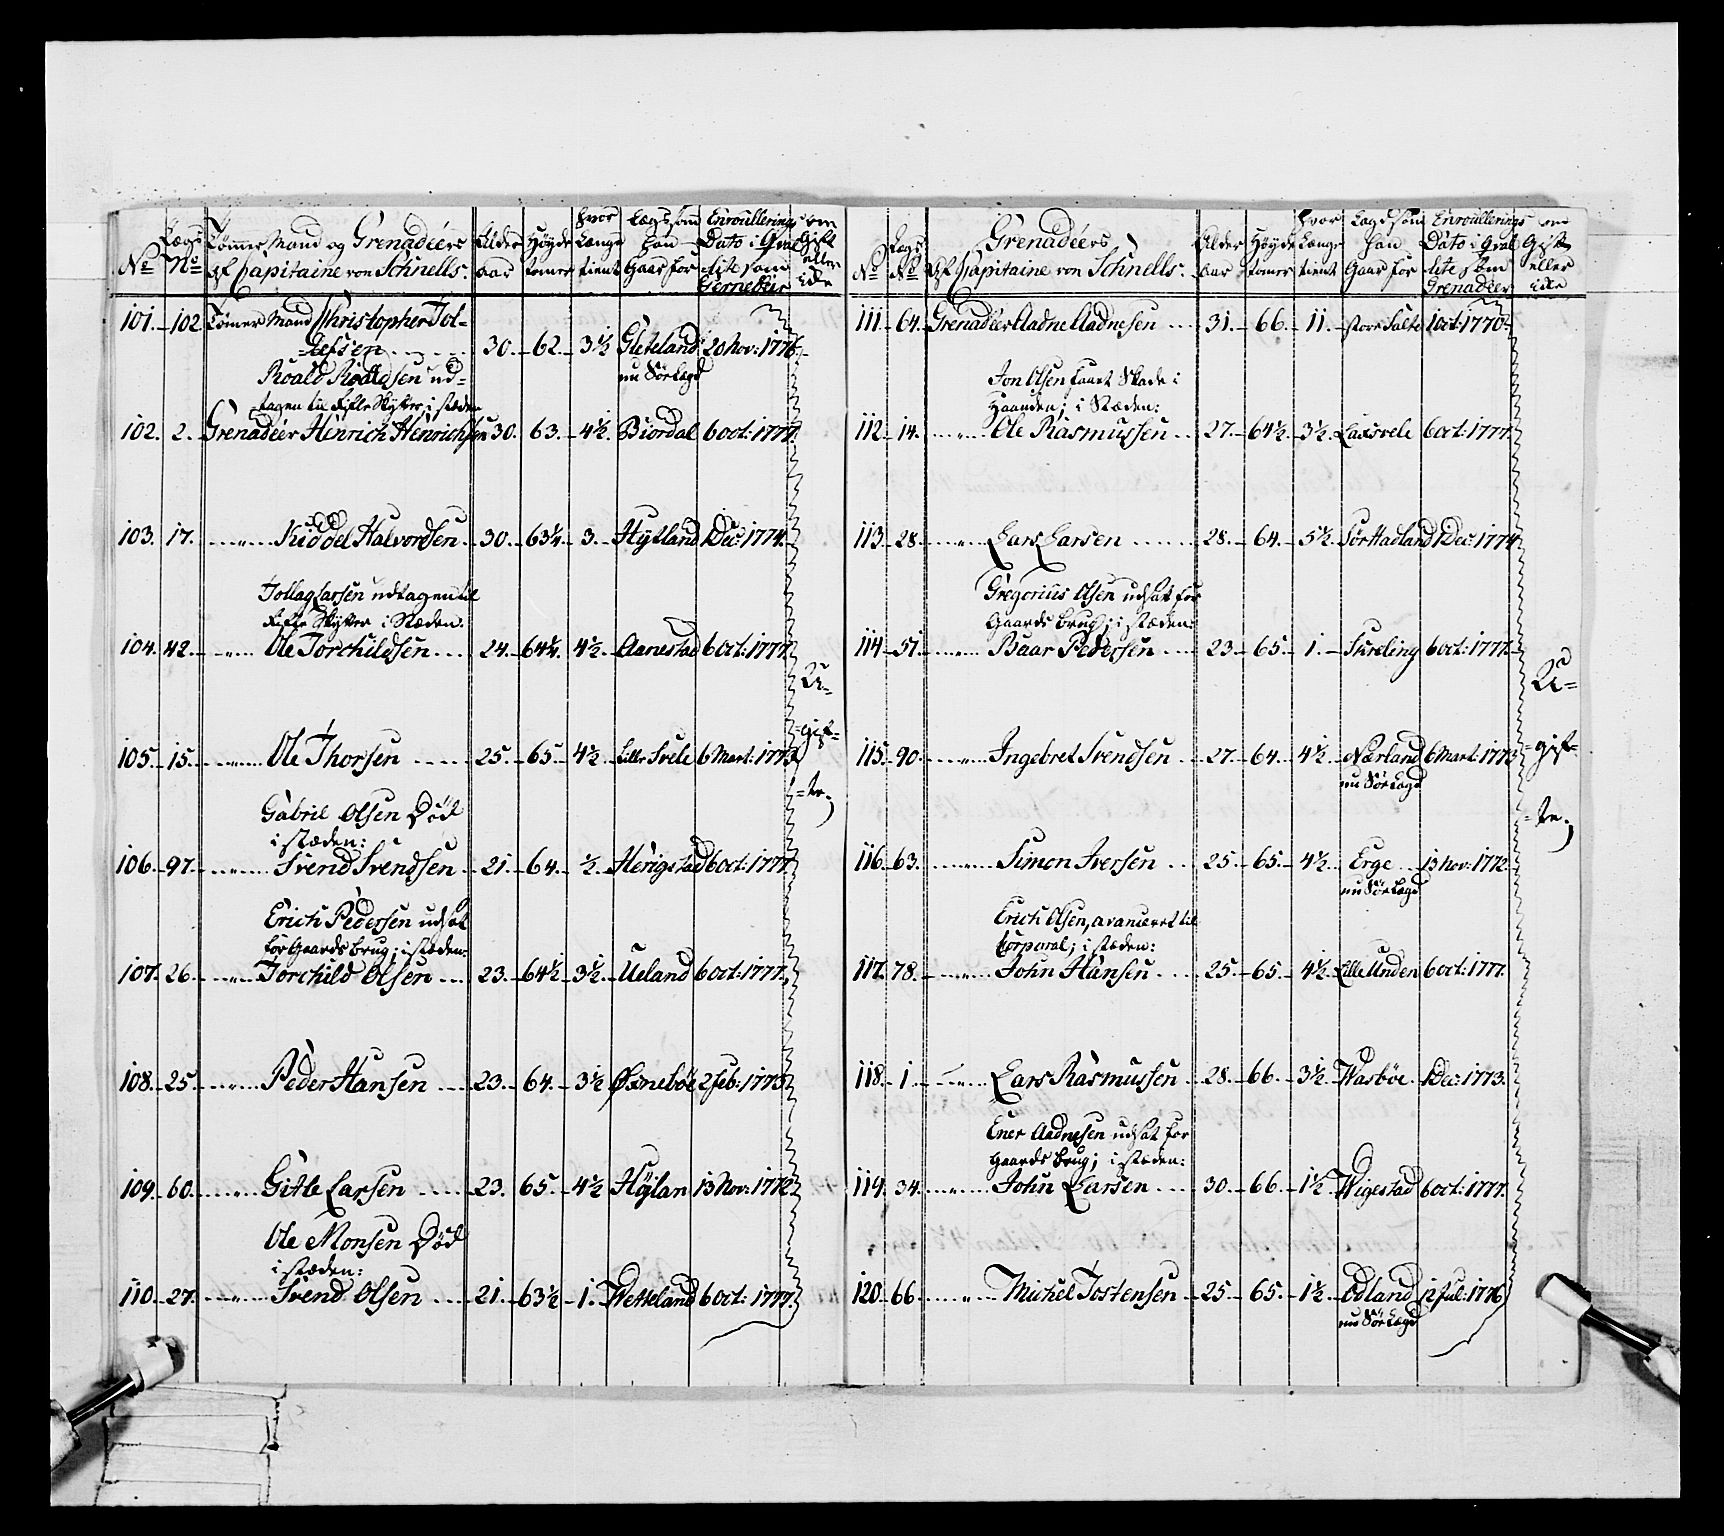 No Lægs No Tømer Mand og Grenadeers af Capitaine von Schnells: Alder aar Høyde tomer hvor Længe tient Lægd som han Gaar for Enroullerings Dato i Qvalitet som Gernedeir om Gift eller ide
101. 102 Tømer Mand Christopher Tol-
lefsen 30. 62. 3½ Gleteland 20 Nov: 1776
nu Sør Lægd
Roald Roaldsen ud-
tagen til Rifle Skytter i stæden
102. 2. Grenadéer Henrich Henrichsen 30. 63. 4½. Biordal 6 oct: 1777.
103. 17. " Kiddel Halvordsen 30. 63¼ 3. Hytland 1 Dec: 1774.
Tollag Larsen udtagen til
Rifle Skytter i Stæden.
104. 42. " Ole Torchildsen 24. 64¼. 4½. Aanestad 6 oct: 1777.
105. 15. " Ole Thorsen 25. 65. 4½. Lille Svele 6 Mart: 1773.
Gabril Olsen Død
i stæden:
106. 97. " Svend Svendsen 21. 64. ½. Herigstad 6 oct: 1777.
Erich Pedersen udsat
for Gaards brug; i stæden:
107. 26. " Torchild Olsen 23. 64½ 3½. Ueland 6 oct: 1777.
108. 25. " Peder Hansen 23. 64. 3½ Øxnebøe 2 feb: 1775.
109. 60. " Gitle Larsen 23. 65. 4½ Høylan 13 Nov: 1772.
Ole Monsen Død
i stæden:
110. 27. " Svend Olsen 21. 63½ 1. Wetteland 6 oct: 1777.
U=
=gif=
=te;
No Lægs No Grenadéers af Capitaine von Schnells: Alder aar Høyde tomer hvor Længe tient Lægd som han Gaar for Enroullerings Dato i Qvalitet som Grenadéer om Gift eller ide
111. 64. Grenadéer Aadne Aadnesen 31. 66. 11. stoor Salte 1 oct: 1770.
Jon Olsen faaet Skade i
Haanden; i Stæden:
112. 14. " Ole Rasmussen 27. 64½. 3½. Laxsvele 6 oct: 1777.
113. 28. " Lars Larsen 28. 64. 5½. Sør Hadland 1 Dec: 1774
Gregorius Olsen udsat for
Gaards brug; i stæden:
114. 51. " Baar Pedersen 23. 65. 1. Skreling 6 oct: 1777.
115. 90. " Ingebret Svendsen 27. 64. 4½ Nærland 6 Mart: 1773
nu Sør Lægd
116. 63. " Simon Iversen 25. 65. 4½. Erge 13 Nov: 1772.
nu Sør Lægd
Erich Olsen, avanceret til
Corporal; i stæden:
117. 78. " John Hansen 25. 65. 4½. Lille Unden 6 oct: 1777.
118. 1. " Lars Rasmussen 28. 66. 3½. Wasbøe 1 Dec: 1773.
Ener Aadnesen udsat for
gaards brug; i stæden:
119. 34. " John Larsen 30. 66. 1½. Wigestad 6 oct: 1777.
120. 66. " Michel Tostensen 25. 65. 1½. Odland 12 Jul: 1776
nu Sør Lægd
U=
=gif=
=te;